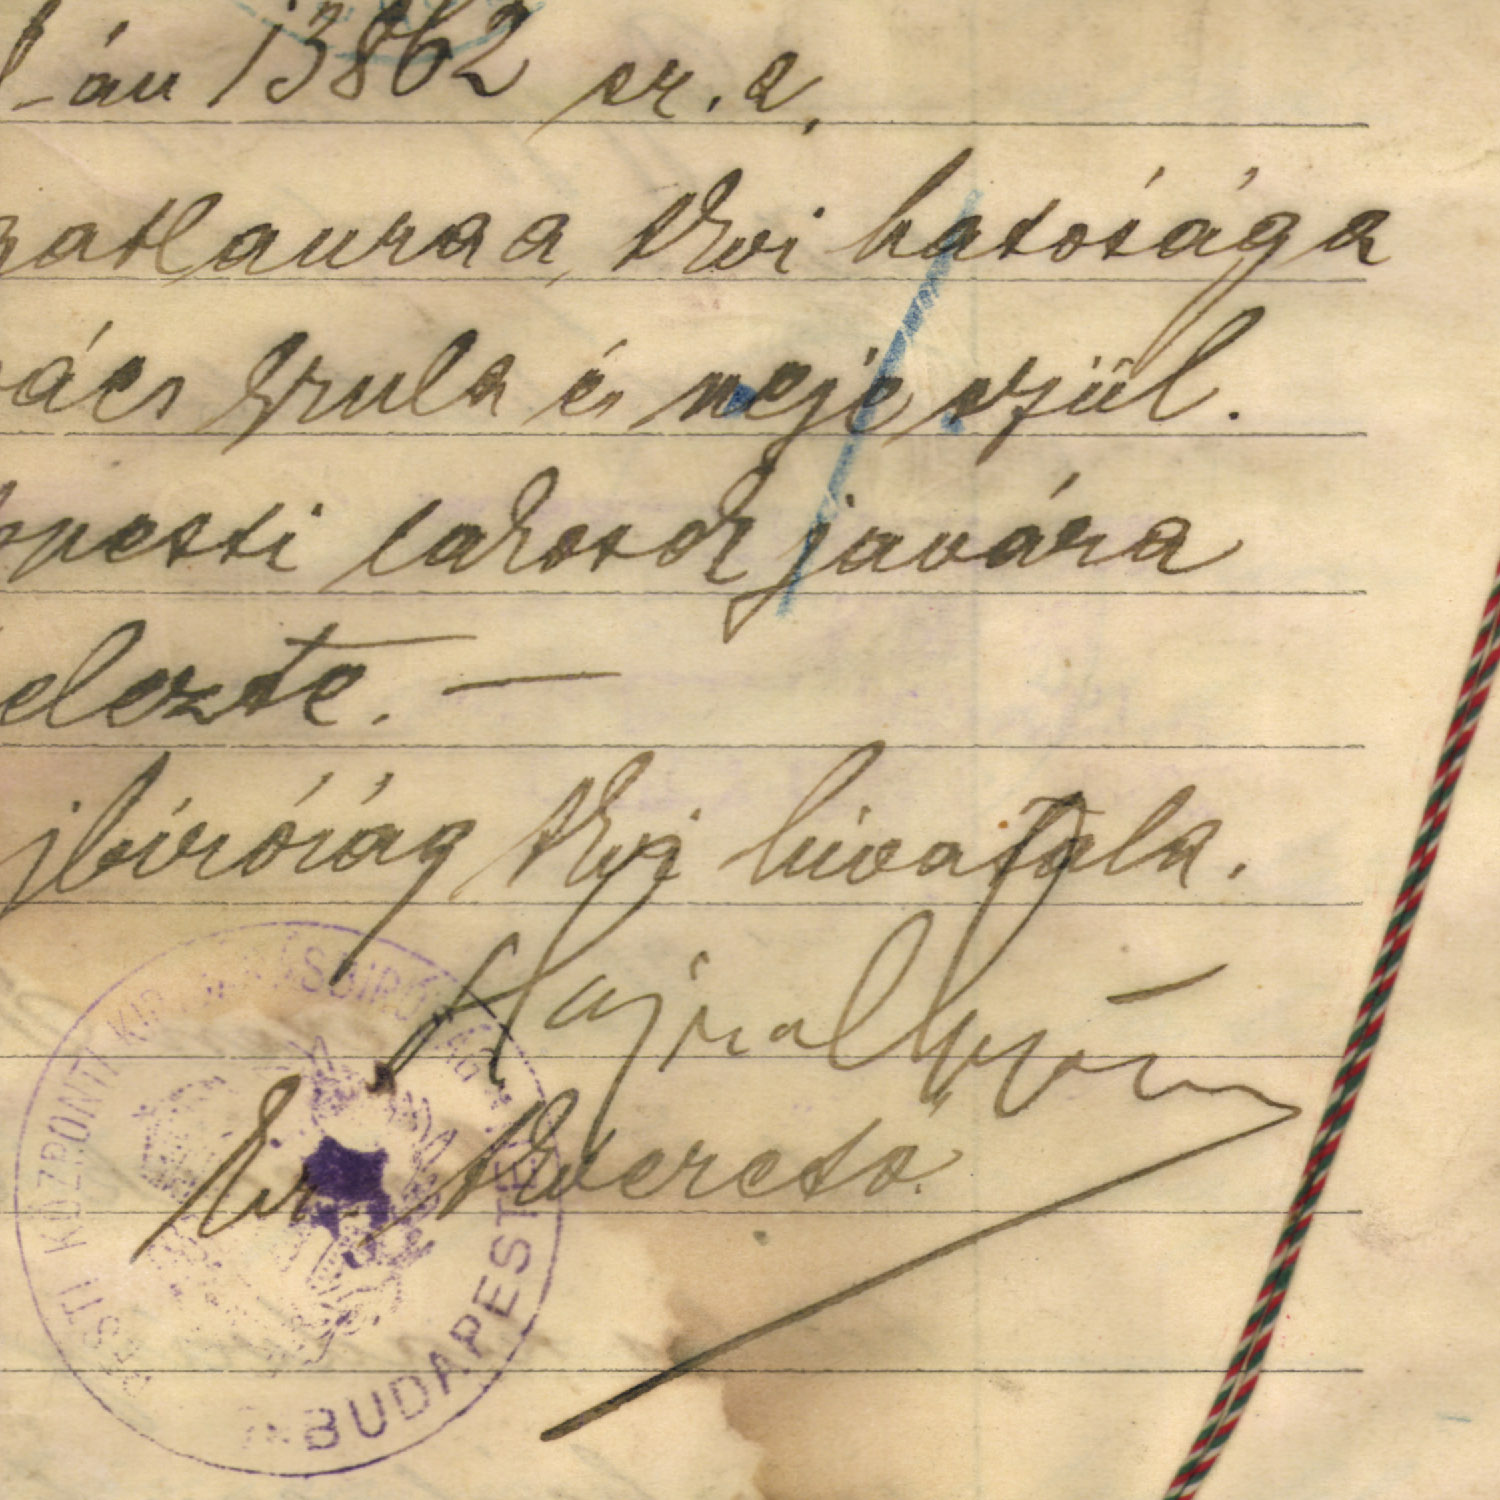 -án 13862 sz. a.
gatlanra a tkvi hatósága
ács Gyula és neje szül.
pesti lakosok javára
elezte. —
jbíróság tkvi hivatala.
kir. tkvvezető.
PESTI KÖZPONTI KIR. JÁRÁSBIRÓSÁG
BUDAPESTEN